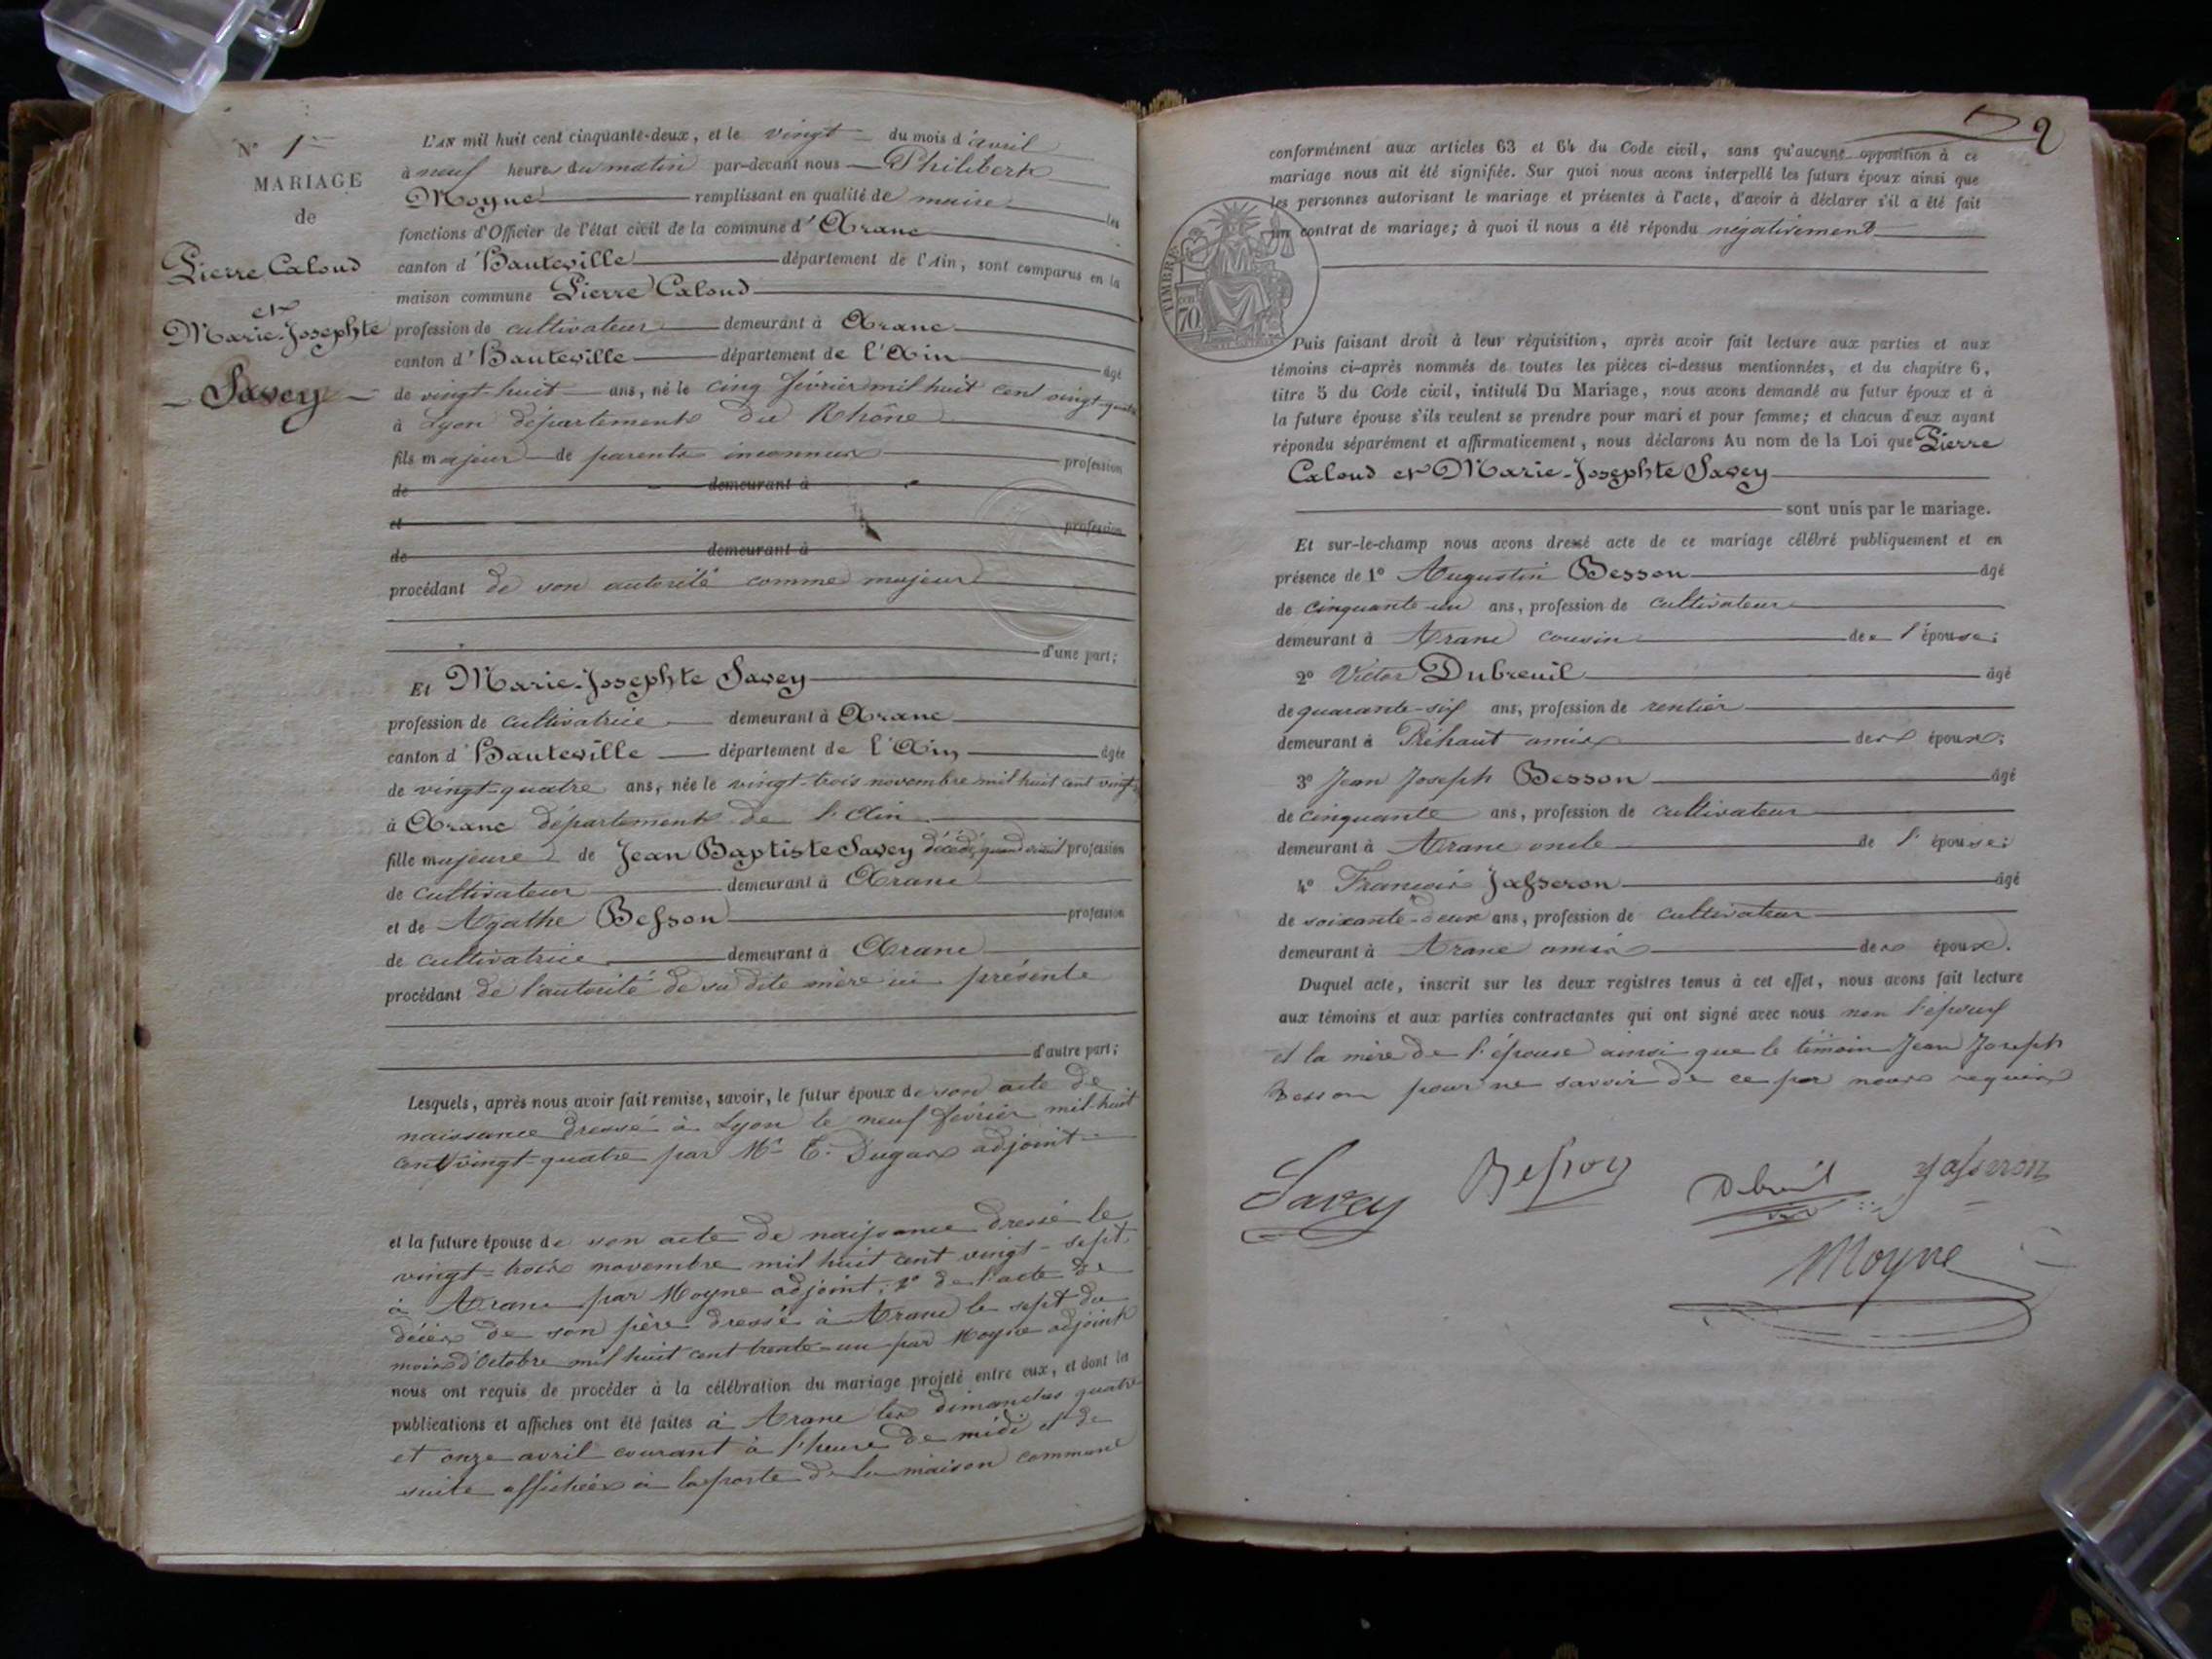 N° 1er
MARIAGE
de
Pierre Caloud
et
Marie-Josephte
Savey
L'AN mil huit cent cinquante-deux, et le vingt du mois d'avril
à neuf heures du matin par-devant nous Philibert
Moyne remplissant en qualité de maire les
fonctions d'Officier de l'état civil de la commune d'Aranc
canton d'Hauteville département de l'Ain, sont comparus en la
maison commune Pierre Caloud
profession de cultivateur demeurant à Aranc
canton d'Hauteville département de l'Ain âgé
de vingt-huit ans, né le cinq février mil huit cent vingt-quatre
à Lyon département du Rhône
fils majeur de parents inconnus profession
de demeurant à
et profession
de demeurant à
procédant de son autorité comme majeur
d'une part;
Et Marie-Josephte Savey
profession de cultivatrice demeurant à Aranc
canton d'Hauteville département de l'Ain âgée
de vingt-quatre ans, née le vingt-trois novembre mil huit cent vingt
à Aranc département de l'Ain
fille majeure de Jean Baptiste Savey décédé, quand vivait profession
de cultivateur demeurant à Aranc
et de Agathe Besson profession
de cultivatrice demeurant à Aranc
procédant de l'autorité de sa dite mère ici présente
d'autre part;
Lesquels, après nous avoir fait remise, savoir, le futur époux de son acte de
naissance dressé à Lyon le neuf février mil-huit
cent vingt-quatre par Mr E. Dugas adjoint
et la future épouse de son acte de naissance dressé le
vingt-trois novembre mil huit cent vingt-sept
à Aranc par Moyne adjoint; 2° de l'acte de
décès de son père dressé à Aranc le sept du
mois d'Octobre mil huit cent trente-un par Moyne adjoint
nous ont requis de procéder à la célébration du mariage projeté entre eux, et dont les
publications et affiches ont été faites à Aranc les dimanches quatre
et onze avril courant à l'heure de midi et de
suite affichées à la porte de la maison commune
2
conformément aux articles 63 et 64 du Code civil, sans qu'aucune opposition à ce
mariage nous ait été signifiée. Sur quoi nous avons interpellé les futurs époux ainsi que
les personnes autorisant le mariage et présentes à l'acte, d'avoir à déclarer s'il a été fait
un contrat de mariage; à quoi il nous a été répondu négativement
TIMBRE
70
Puis faisant droit à leur réquisition, après avoir fait lecture aux parties et aux
témoins ci-après nommés de toutes les pièces ci-dessus mentionnées, et du chapitre 6,
titre 5 du Code civil, intitulé Du Mariage, nous avons demandé au futur époux et à
la future épouse s'ils veulent se prendre pour mari et pour femme; et chacun d'eux ayant
répondu séparément et affirmativement, nous déclarons Au nom de la Loi que Pierre
Caloud et Marie-Josephte Savey
sont unis par le mariage.
Et sur-le-champ nous avons dressé acte de ce mariage célébré publiquement et en
présence de 1° Augustin Besson âgé
de cinquante-un ans, profession de cultivateur
demeurant à Aranc cousin de l'épouse;
2° Victor Dubreuil âgé
de quarante-six ans, profession de rentier
demeurant à Préhaut amis des époux;
3° Jean Joseph Besson âgé
de cinquante ans, profession de cultivateur
demeurant à Aranc oncle de l'épouse;
4° François Jasseron âgé
de soixante-deux ans, profession de cultivateur
demeurant à Aranc amis des époux.
Duquel acte, inscrit sur les deux registres tenus à cet effet, nous avons fait lecture
aux témoins et aux parties contractantes qui ont signé avec nous non l'époux
et la mère de l'épouse ainsi que le témoin Jean Joseph
Besson pour ne savoir de ce par nous requis
Savey Besson Dubreuil Jasseron
Moyne